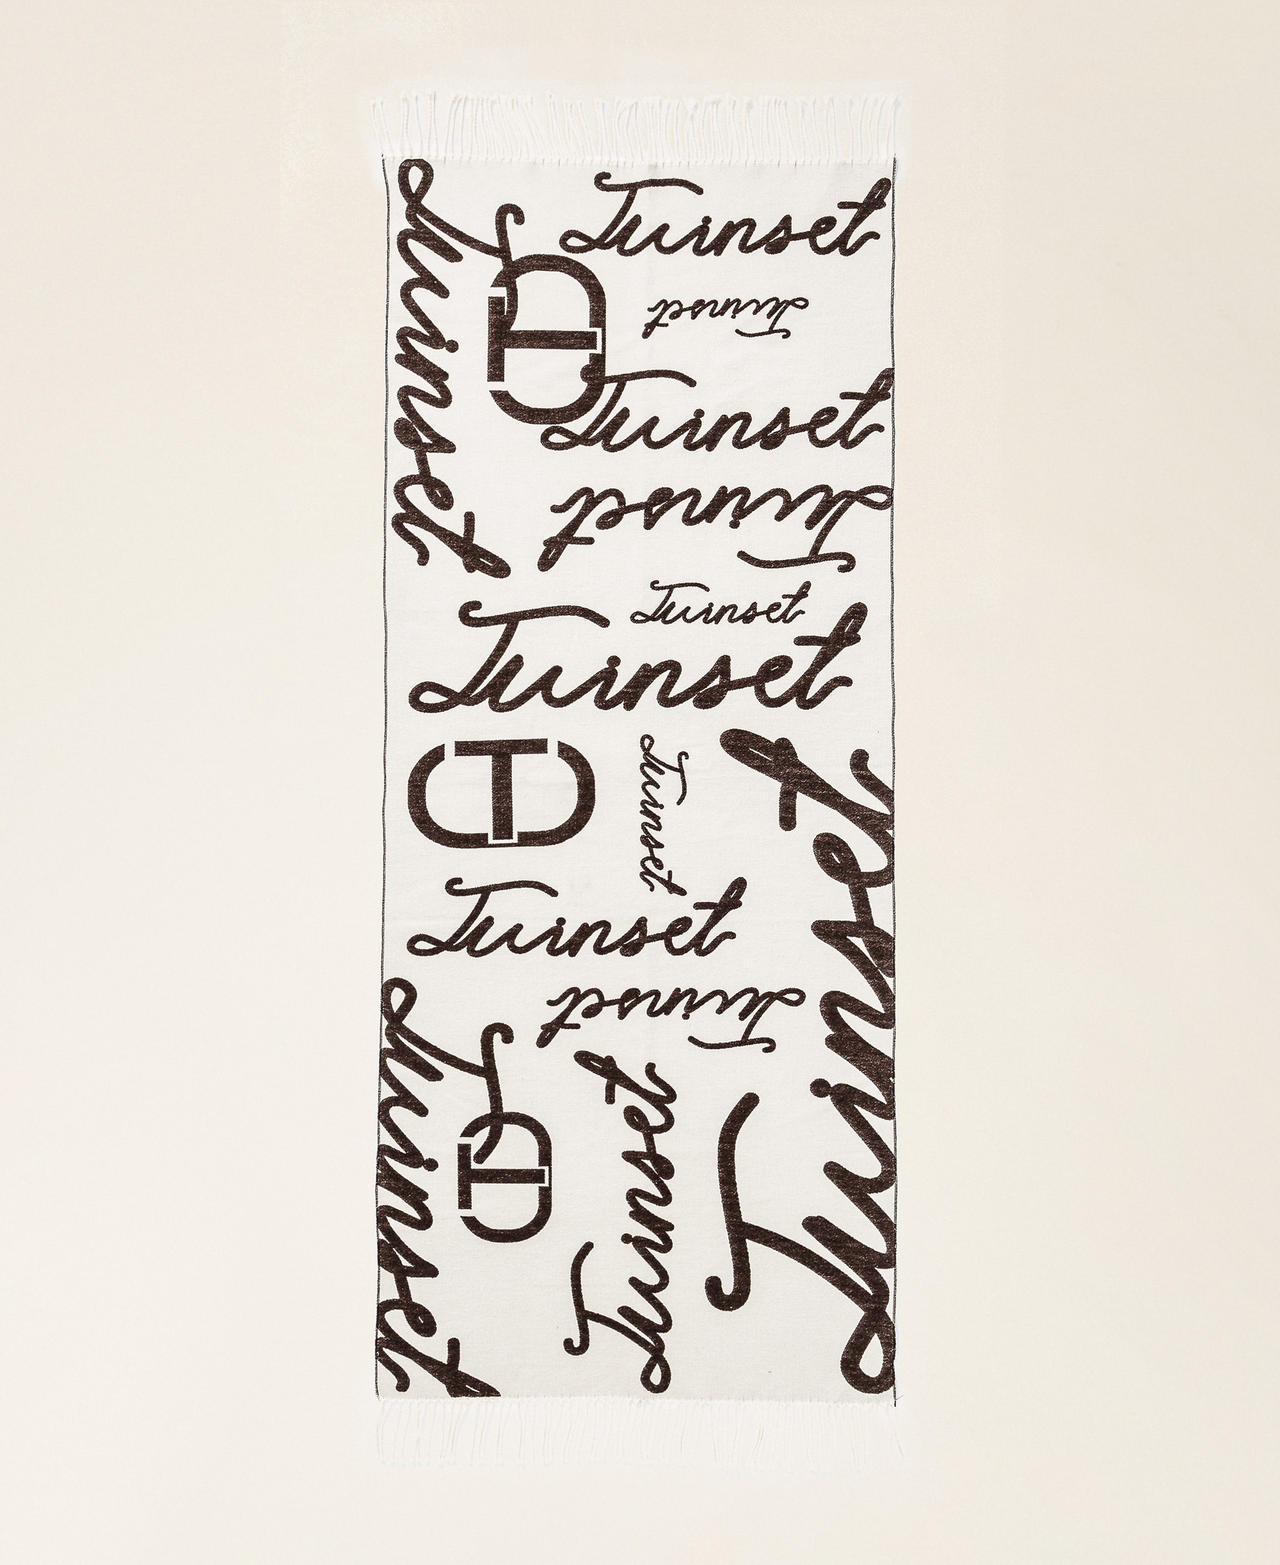 Twinset
Twinset
Twinset
Twinset
Twinset
Twinset
Twinset
Twinset
Twinset
Twinset
Twinset
Twinset
Twinset